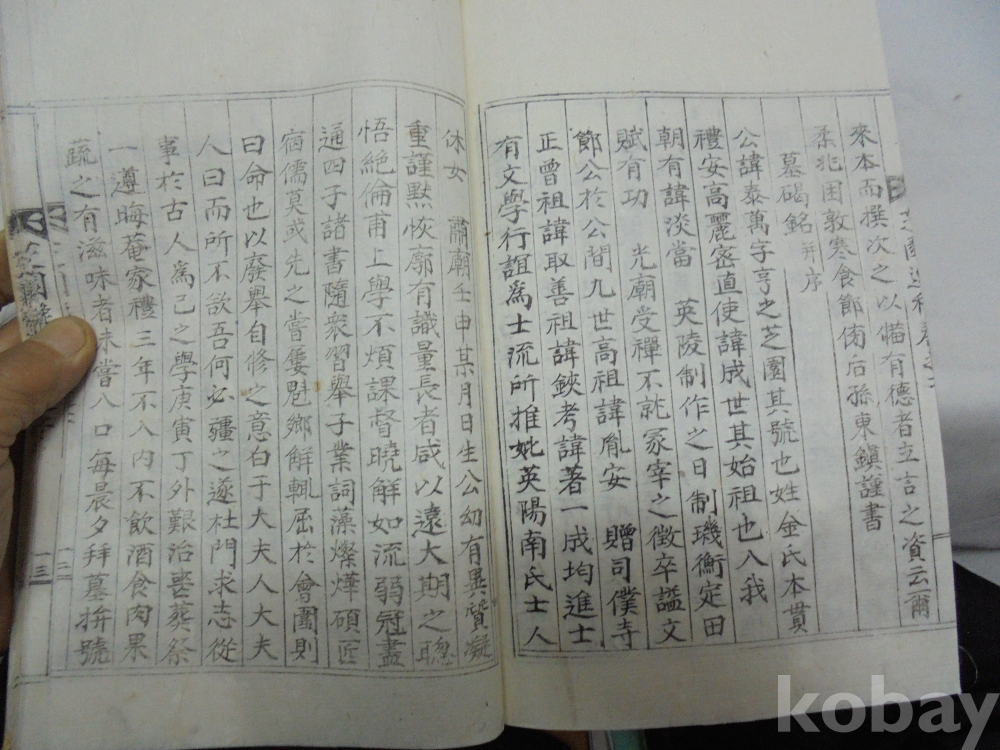 來本而撰次之以備有德者立言之資云爾
柔兆困敦寒食節後后孫東鎭謹書
墓碣銘 并序
公諱泰萬字亨之芝園其號也姓金氏本貫
禮安高麗密直使諱成世其始祖也入我
朝有諱淡當 英陵制作之日制璣衡定田
賦有功 光廟受禪不就冢宰之徵卒謚文
節公於公間九世高祖諱胤安 贈司僕寺
正曾祖諱取善祖諱鋏考諱著一成均進士
有文學行誼爲士流所推妣英陽南氏士人
休女 肅廟壬申某月日生公幼有異質凝
重謹默恢廓有識量長者咸以遠大期之聰
悟絶倫甫上學不煩課督曉解如流弱冠盡
通四子諸書隨衆習擧子業詞藻燦燁碩匠
宿儒莫或先之嘗屢魁鄕解輒屈於會圍則
曰命也以廢擧自修之意白于大夫人大夫
人曰而所不欲吾何必疆之遂杜門求志從
事於古人爲己之學庚寅丁外艱治喪葬祭
一遵晦菴家禮三年不入內不飮酒食肉果
蔬之有滋味者未嘗入口每晨夕拜墓拚號
一三
kobay